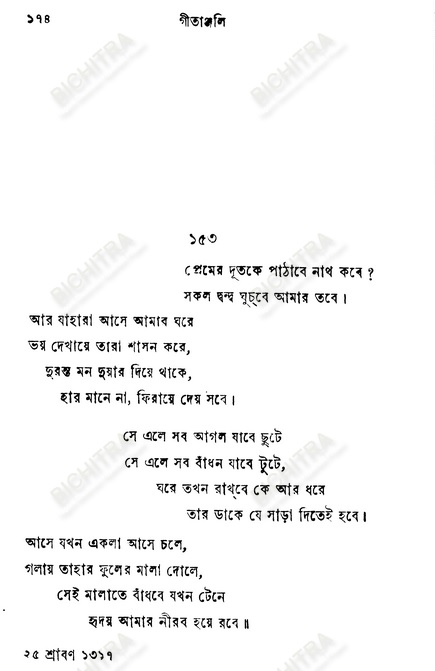 ১৭৪
গীতাঞ্জলি
১৫৩
প্রেমের দূতকে পাঠাবে নাথ কবে ?
সকল দ্বন্দ্ব ঘুচ্‌বে আমার তবে ।
আর যাহারা আসে আমাব ঘরে
ভয় দেখায়ে তারা শাসন করে,
দুরন্ত মন দুয়ার দিয়ে থাকে,
হার মানে না, ফিরায়ে দেয় সবে ।
সে এলে সব আগল যাবে ছুটে
সে এলে সব বাঁধন যাবে টুটে,
ঘরে তখন রাখ্‌বে কে আর ধরে
তার ডাকে যে সাড়া দিতেই হবে ।
আসে যখন একলা আসে চলে,
গলায় তাহার ফুলের মালা দোলে,
সেই মালাতে বাঁধবে যখন টেনে
হৃদয় আমার নীরব হয়ে রবে ॥
২৫ শ্রাবণ ১৩১৭
BICHITRA
BICHITRA
BICHITRA
BICHITRA
BICHITRA
BICHITRA